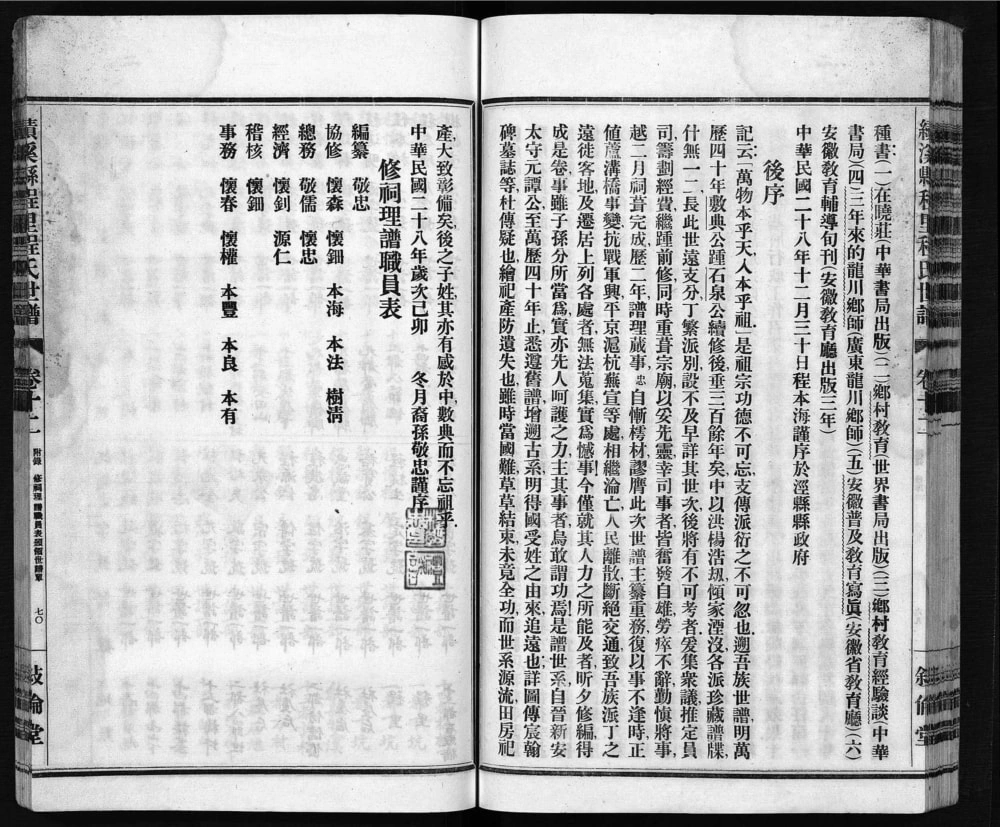 種書(一)在曉莊(中華書局出版)(二)鄉村教育(世界書局出版)(三)鄉村教育經驗談(中華
書局)(四)三年來的龍川鄉師(廣東龍川鄉師)(五)安徽普及教育寫眞(安徽省教育廳)(六)
安徽教育輔導旬刊(安徽教育廳出版三年)
中華民國二十八年十二月三十日程本海謹序於涇縣縣政府
後序
記云「萬物本乎天人本乎祖」是祖宗功德不可忘支傳派衍之不可忽也遡吾族世譜明萬
歷四十年敷典公踵石泉公續修後垂三百餘年矣中以洪楊浩刼傾家湮沒各派珍藏譜牒
什無一二長此世遠支分丁繁派別設不及早詳其世次後將有不可考者爰集衆議推定員
司籌劃經費繼踵前修同時重葺宗廟以妥先靈幸司事者皆奮發自雄勞瘁不辭勤愼將事
越二月祠葺完成歷二年譜理蕆事忠自慚樗材謬膺此次世譜主纂重務復以事不逢時正
値蘆溝橋事變抗戰軍興平京滬杭蕪宣等處相繼淪亡人民離散斷絕交通致吾族派丁之
遠徙客地及遷居上列各處者無法蒐集實爲憾事今僅就其人力之所能及者昕夕修編得
成是卷事雖子孫分所當爲實亦先人呵護之力主其事者烏敢謂功焉是譜世系自晉新安
太守元譚公至萬歷四十年止悉遵舊譜增遡古系明得國受姓之由來追遠也詳圖傳宸翰
碑墓誌等杜傳疑也繪祀產防遺失也雖時當國難草草結束未竟全功而世系源流田房祀
績溪縣程里程氏世譜
敍倫堂
產大致彰備矣後之子姓其亦有感於中數典而不忘祖乎
中華民國二十八年歲次己卯 冬月裔孫敬忠謹序
修祠理譜職員表
編纂 敬忠
協修 懷森 懷鈿 本海 本法 樹淸
總務 敬儒 懷忠
經濟 懷釗 源仁
稽核 懷鈿
事務 懷春 懷權 本豐 本良 本有
績溪縣程里程氏世譜 卷十二 附錄 修祠理譜職員表 領世譜單 七〇 敍倫堂